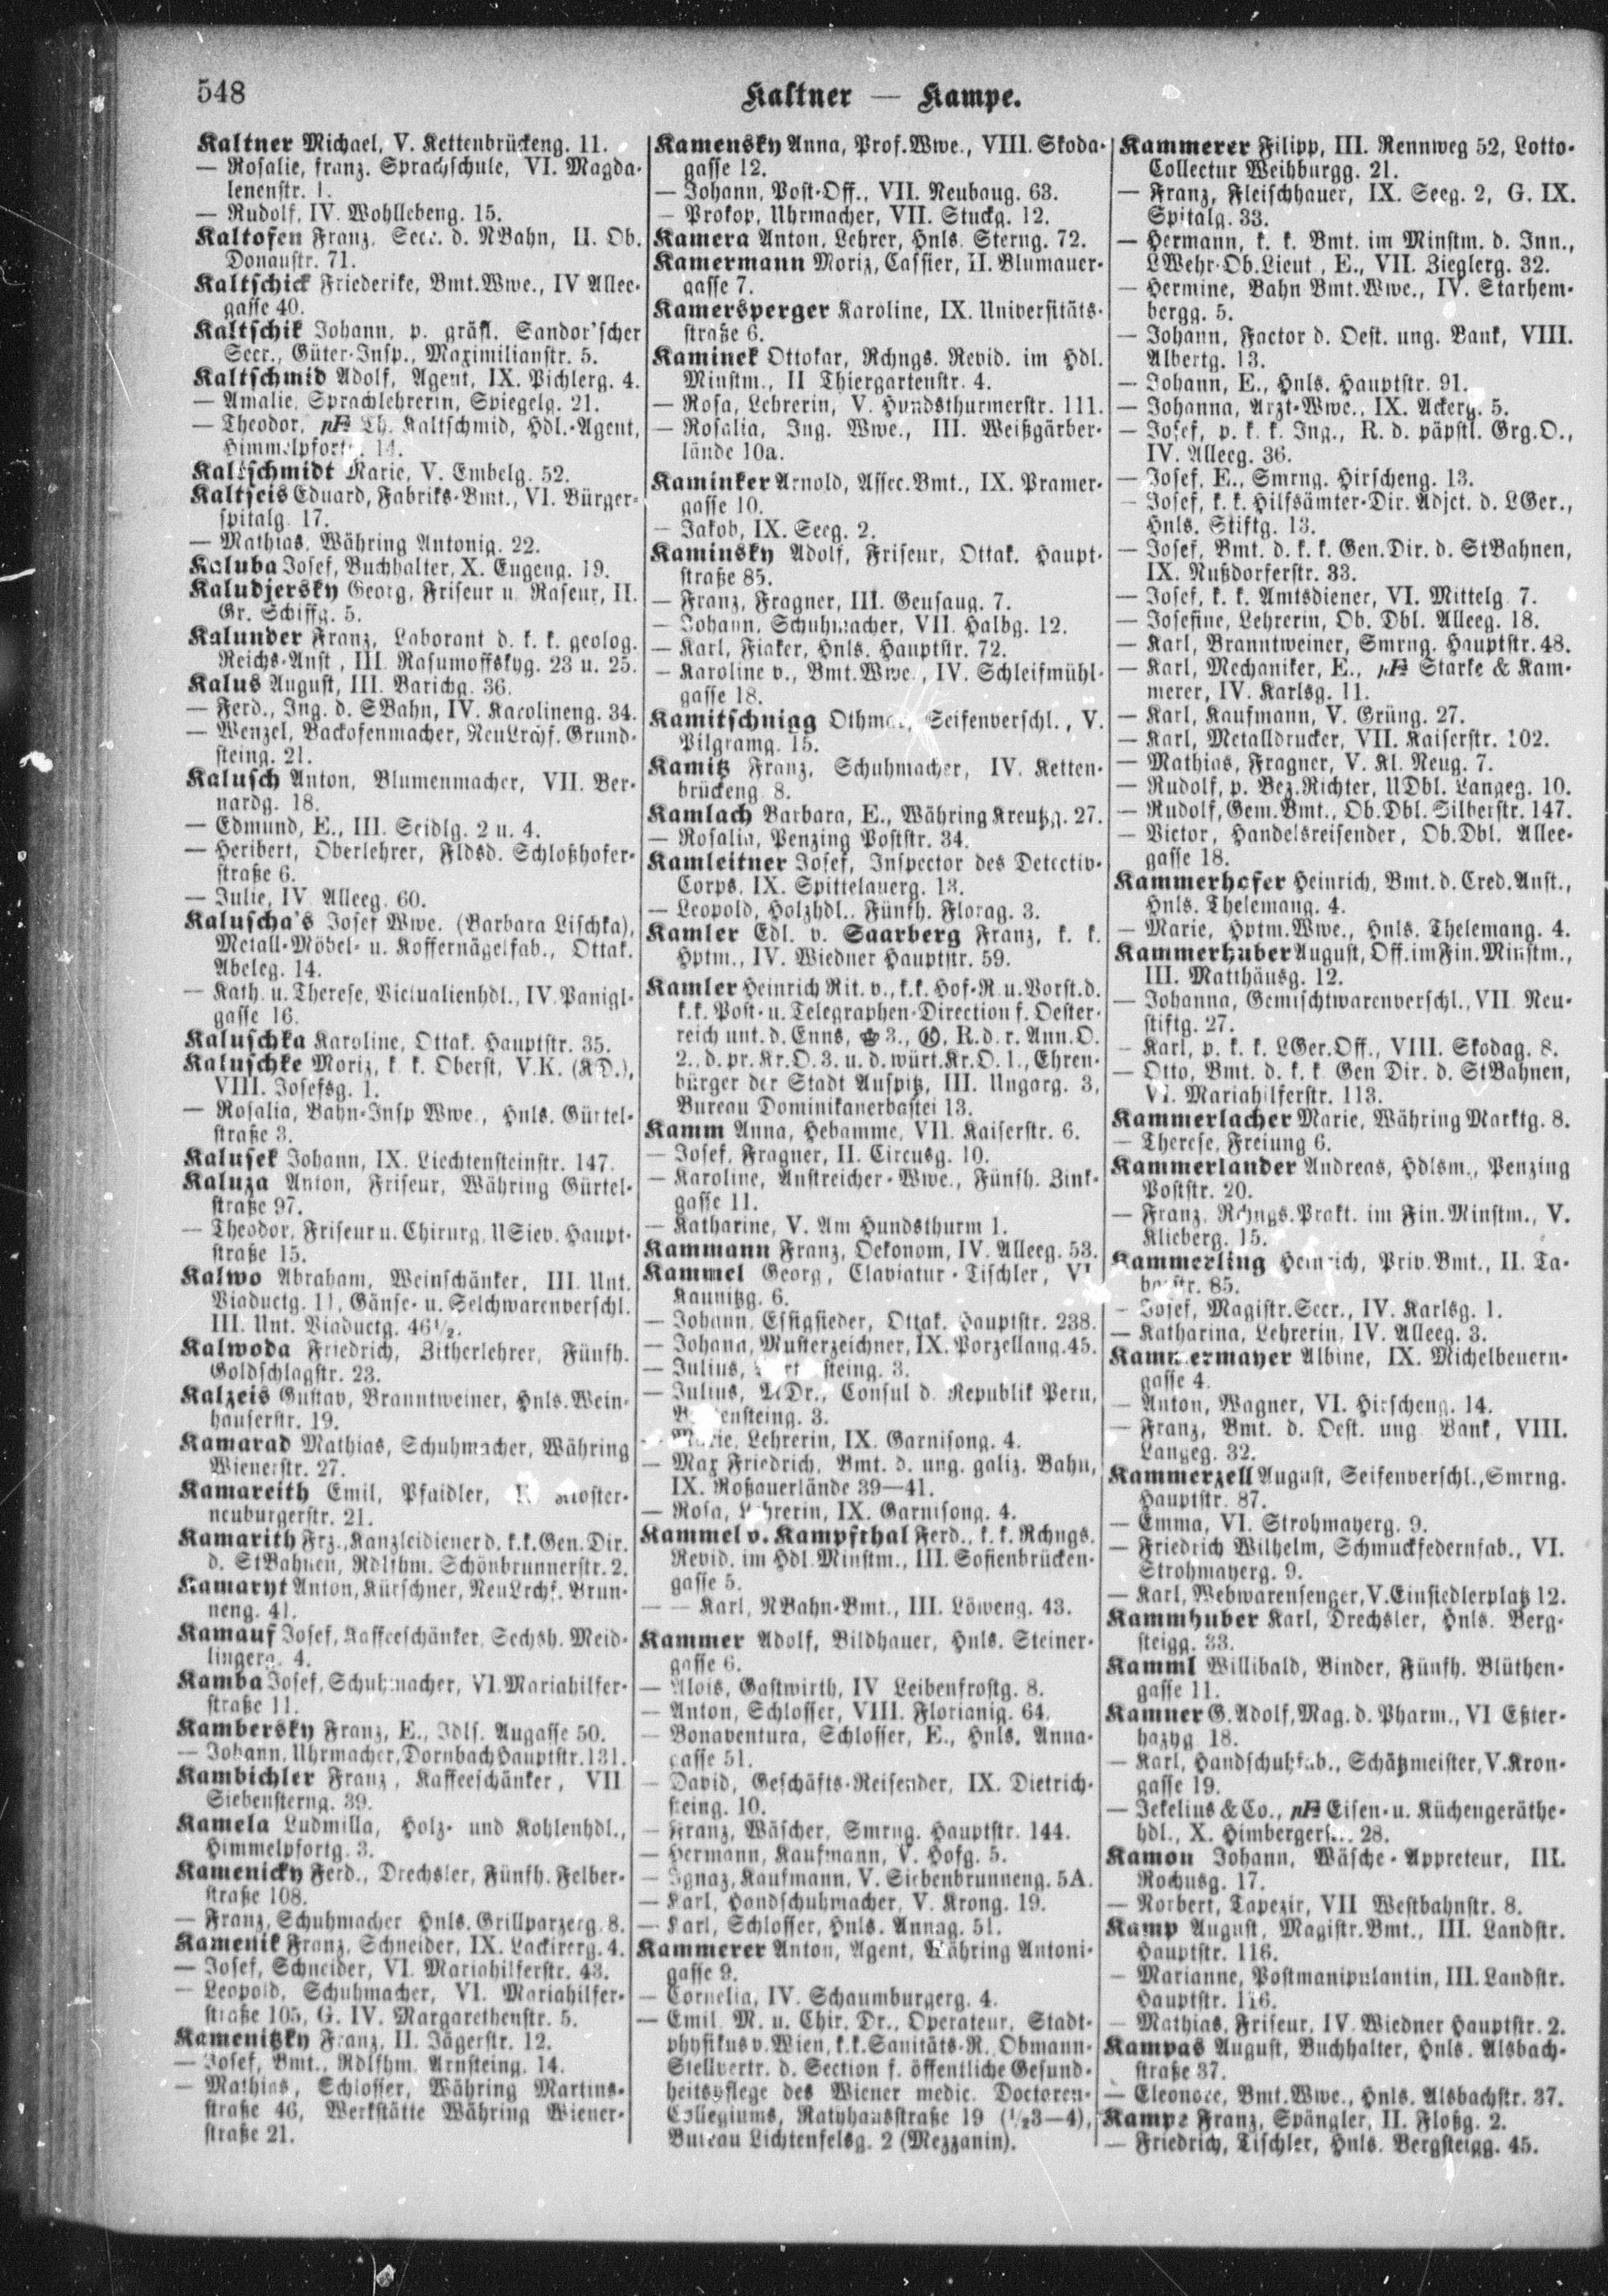 548
Kaltner — Kampe.
Kaltner Michael, V. Kettenbrückeng. 11.
— Rosalie, franz. Sprachschule, VI. Magda-
lenenstr. 1.
— Rudolf, IV. Wohllebeng. 15.
Kaltofen Franz, Secr. d. NBahn, II. Ob.
Donaustr. 71.
Kaltschick Friederike, Bmt.Wwe., IV Allee-
gasse 40.
Kaltschik Johann, p. gräfl. Sandor'scher
Secr., Güter-Insp., Maximilianstr. 5.
Kaltschmid Adolf, Agent, IX. Pichlerg. 4.
— Amalie, Sprachlehrerin, Spiegelg. 21.
— Theodor, Th. Kaltschmid, Hdl.-Agent,
14.
Kaltschmidt Marie, V. Embelg. 52.
Kaltseis Eduard, Fabriks-Bmt., VI. Bürger-
spitalg. 17.
— Mathias, Währing Antonig. 22.
Kaluba Josef, Buchhalter, X. Eugeng. 19.
Kaludjersky Georg, Friseur u. Raseur, II.
Gr. Schiffg. 5.
Kalunder Franz, Laborant d. k. k. geolog.
Reichs-Anst., III. Rasumoffskyg. 23 u. 25.
Kalus August, III. Barichg. 36.
— Ferd., Ing. d. SBahn, IV. Karolineng. 34.
— Wenzel, Backofenmacher, NeuLrchf. Grund-
steing. 21.
Kalusch Anton, Blumenmacher, VII. Ber-
nardg. 18.
— Edmund, E., III. Seidlg. 2 u. 4.
— Heribert, Oberlehrer, Fldsd. Schloßhofer-
straße 6.
— Julie, IV. Alleeg. 60.
Kaluscha's Josef Wwe. (Barbara Lischka),
Metall-Möbel- u. Koffernägelfab., Ottak.
Abeleg. 14.
— Kath. u. Therese, Victualienhdl., IV. Panigl-
gasse 16.
Kaluschka Karoline, Ottak. Hauptstr. 35.
Kaluschke Moriz, k. k. Oberst, V.K. (KD.),
VIII. Josefsg. 1.
— Rosalia, Bahn-Insp Wwe., Hnls. Gürtel-
straße 3.
Kalusek Johann, IX. Liechtensteinstr. 147.
Kaluza Anton, Friseur, Währing Gürtel-
straße 97.
— Theodor, Friseur u. Chirurg, USiev. Haupt-
straße 15.
Kalwo Abraham, Weinschänker, III. Unt.
Viaductg. 11, Gänse- u. Selchwarenverschl.
III. Unt. Viaductg. 46½.
Kalwoda Friedrich, Zitherlehrer, Fünfh.
Goldschlagstr. 23.
Kalzeis Gustav, Branntweiner, Hnls. Wein-
hauserstr. 19.
Kamarad Mathias, Schuhmacher, Währing
Wienerstr. 27.
Kamareith Emil, Pfaidler, Kloster-
neuburgerstr. 21.
Kamarith Frz., Kanzleidiener d. k.k. Gen. Dir.
d. StBahnen, Rdlfhm. Schönbrunnerstr. 2.
Kamaryt Anton, Kürschner, NeuLrchf. Brun-
neng. 41.
Kamauf Josef, Kaffeeschänker, Sechsh. Meid-
lingerg. 4.
Kamba Josef, Schuhmacher, VI. Mariahilfer-
straße 11.
Kambersky Franz, E., Jdlf. Augasse 50.
— Johann, Uhrmacher, Dornbach Hauptstr. 131.
Kambichler Franz, Kaffeeschänker, VII
Siebensterng. 39.
Kamela Ludmilla, Holz- und Kohlenhdl.,
Himmelpfortg. 3.
Kamenicky Ferd., Drechsler, Fünfh. Felber-
straße 108.
— Franz, Schuhmacher Hnls. Grillparzerg. 8.
Kamenik Franz, Schneider, IX. Lackirerg. 4.
— Josef, Schneider, VI. Mariahilferstr. 43.
— Leopold, Schuhmacher, VI. Mariahilfer-
straße 105, G. IV. Margarethenstr. 5.
Kamenitzky Franz, II. Jägerstr. 12.
— Josef, Bmt., Rdlfhm. Arnsteing. 14.
— Mathias, Schlosser, Währing Martins-
straße 46, Werkstätte Währing Wiener-
straße 21.
Kamensky Anna, Prof.Wwe., VIII. Skoda-
gasse 12.
— Johann, Post-Off., VII. Neubaug. 63.
— Prokop, Uhrmacher, VII. Stuckg. 12.
Kamera Anton, Lehrer, Hnls. Sterng. 72.
Kamermann Moriz, Cassier, II. Blumauer-
gasse 7.
Kamersperger Karoline, IX. Universitäts-
straße 6.
Kaminek Ottokar, Rchngs. Revid. im Hdl.
Minstm., II Thiergartenstr. 4.
— Rosa, Lehrerin, V. Hundsthurmerstr. 111.
— Rosalia, Ing. Wwe., III. Weißgärber-
lände 10a.
Kaminker Arnold, Assec.Bmt., IX. Pramer-
gasse 10.
— Jakob, IX. Seeg. 2.
Kaminsky Adolf, Friseur, Ottak. Haupt-
straße 85.
— Franz, Fragner, III. Geusaug. 7.
— Johann, Schuhmacher, VII. Halbg. 12.
— Karl, Fiaker, Hnls. Hauptstr. 72.
— Karoline v., Bmt.Wwe., IV. Schleifmühl-
gasse 18.
Kamitschnigg Othmar, Seifenverschl., V.
Pilgramg. 15.
Kamitz Franz, Schuhmacher, IV. Ketten-
brückeng. 8.
Kamlach Barbara, E., Währing Kreutzg. 27.
— Rosalia, Penzing Poststr. 34.
Kamleitner Josef, Inspector des Detectiv-
Corps, IX. Spittelauerg. 13.
— Leopold, Holzhdl., Fünfh. Florag. 3.
Kamler Edl. v. Saarberg Franz, k. k.
Hptm., IV. Wiedner Hauptstr. 59.
Kamler Heinrich Rit. v., k.k. Hof-R. u. Vorst. d.
k.k. Post- u. Telegraphen-Direction f. Oester-
reich unt. d. Enns, 3., R. d. r. Ann.O.
2., d. pr. Kr.O. 3. u. d. würt. Kr.O. 1., Ehren-
bürger der Stadt Auspitz, III. Ungarg. 3,
Bureau Dominikanerbastei 13.
Kamm Anna, Hebamme, VII. Kaiserstr. 6.
— Josef, Fragner, II. Circusg. 10.
— Karoline, Anstreicher-Wwe., Fünfh. Zink-
gasse 11.
— Katharine, V. Am Hundsthurm 1.
Kammann Franz, Oekonom, IV. Alleeg. 53.
Kammel Georg, Claviatur-Tischler, VI.
Kaunitzg. 6.
— Johann, Essigsieder, Ottak. Hauptstr. 238.
— Johann, Musterzeichner, IX. Porzellang. 45.
— Julius, steing. 3.
— Julius, Consul d. Republik Peru,
3.
— Marie, Lehrerin, IX. Garnisong. 4.
— Max Friedrich, Bmt. d. ung. galiz. Bahn,
IX. Roßauerlände 39—41.
— Rosa, Lehrerin, IX. Garnisong. 4.
Kammel v. Kampfthal Ferd., k. k. Rchngs.
Revid. im Hdl. Minstm., III. Sofienbrücken-
gasse 5.
— — Karl, NBahn-Bmt., III. Löweng. 43.
Kammer Adolf, Bildhauer, Hnls. Steiner-
gasse 6.
— Alois, Gastwirth, IV Leibenfrostg. 8.
— Anton, Schlosser, VIII. Florianig. 64.
— Bonaventura, Schlosser, E., Hnls. Anna-
gasse 51.
— David, Geschäfts-Reisender, IX. Dietrich-
steing. 10.
— Franz, Wäscher, Smrng. Hauptstr. 144.
— Hermann, Kaufmann, V. Hofg. 5.
— Ignaz, Kaufmann, V. Siebenbrunneng. 5A.
— Karl, Handschuhmacher, V. Krong. 19.
— Karl, Schlosser, Hnls. Annag. 51.
Kammerer Anton, Agent, Währing Antoni-
gasse 9.
— Cornelia, IV. Schaumburgerg. 4.
— Emil, M. u. Chir. Dr., Operateur, Stadt-
physikus v. Wien, k.k. Sanitäts-R., Obmann-
Stellvertr. d. Section f. öffentliche Gesund-
heitspflege des Wiener medic. Doctoren-
Collegiums, Rathhausstraße 19 (½3—4),
Bureau Lichtenfelsg. 2 (Mezzanin).
Kammerer Filipp, III. Rennweg 52, Lotto-
Collectur Weihburgg. 21.
— Franz, Fleischhauer, IX. Seeg. 2, G. IX.
Spitalg. 33.
— Hermann, k. k. Bmt. im Minstm. d. Inn.,
LWehr-Ob.Lieut., E., VII. Zieglerg. 32.
— Hermine, Bahn Bmt.Wwe., IV. Starhem-
bergg. 5.
— Johann, Factor d. Oest. ung. Bank, VIII.
Albertg. 13.
— Johann, E., Hnls. Hauptstr. 91.
— Johanna, Arzt-Wwe., IX. Ackerg. 5.
— Josef, p. k. k. Ing., R. d. päpstl. Grg.O.,
IV. Alleeg. 36.
— Josef, E., Smrng. Hirscheng. 13.
— Josef, k. k. Hilfsämter-Dir. Adjct. d. LGer.,
Hnls. Stiftg. 13.
— Josef, Bmt. d. k. k. Gen.Dir. d. StBahnen,
IX. Nußdorferstr. 33.
— Josef, k. k. Amtsdiener, VI. Mittelg. 7.
— Josefine, Lehrerin, Ob. Dbl. Alleeg. 18.
— Karl, Branntweiner, Smrng. Hauptstr. 48.
— Karl, Mechaniker, E., Starke & Kam-
merer, IV. Karlsg. 11.
— Karl, Kaufmann, V. Grüng. 27.
— Karl, Metalldrucker, VII. Kaiserstr. 102.
— Mathias, Fragner, V. Kl. Neug. 7.
— Rudolf, p. Bez.Richter, UDbl. Langeg. 10.
— Rudolf, Gem.Bmt., Ob.Dbl. Silberstr. 147.
— Victor, Handelsreisender, Ob.Dbl. Allee-
gasse 18.
Kammerhofer Heinrich, Bmt. d. Cred. Anst.,
Hnls. Thelemang. 4.
— Marie, Hptm.Wwe., Hnls. Thelemang. 4.
Kammerhuber August, Off. im Fin. Minstm.,
III. Matthäusg. 12.
— Johanna, Gemischtwarenverschl., VII. Neu-
stiftg. 27.
— Karl, p. k. k. LGer.Off., VIII. Skodag. 8.
— Otto, Bmt. d. k. k. Gen Dir. d. StBahnen,
VI. Mariahilferstr. 113.
Kammerlacher Marie, Währing Marktg. 8.
— Therese, Freiung 6.
Kammerlander Andreas, Hdlsm., Penzing
Poststr. 20.
— Franz, Rchngs.Prakt. im Fin. Minstm., V.
Klieberg. 15.
Kammerling Heinrich, Priv.Bmt., II. Ta-
borstr. 85.
— Josef, Magistr.Secr., IV. Karlsg. 1.
— Katharina, Lehrerin, IV. Alleeg. 3.
Kammermayer Albine, IX. Michelbeuern-
gasse 4.
— Anton, Wagner, VI. Hirscheng. 14.
— Franz, Bmt. d. Oest. ung Bank, VIII.
Langeg. 32.
Kammerzell August, Seifenverschl., Smrng.
Hauptstr. 87.
— Emma, VI. Strohmayerg. 9.
— Friedrich Wilhelm, Schmuckfedernfab., VI.
Strohmayerg. 9.
— Karl, Webwarensenger, V. Einsiedlerplatz 12.
Kammhuber Karl, Drechsler, Hnls. Berg-
steigg. 33.
Kamml Willibald, Binder, Fünfh. Blüthen-
gasse 11.
Kamner G. Adolf, Mag. d. Pharm., VI Eßter-
hazyg 18.
— Karl, Handschuhfab., Schätzmeister, V. Kron-
gasse 19.
— Jekelius & Co., Eisen- u. Küchengeräthe-
hdl., X. Himbergerstr. 28.
Kamon Johann, Wäsche-Appreteur, III.
Rochusg. 17.
— Norbert, Tapezir, VII Westbahnstr. 8.
Kamp August, Magistr.Bmt., III. Landstr.
Hauptstr. 116.
— Marianne, Postmanipulantin, III. Landstr.
Hauptstr. 116.
— Mathias, Friseur, IV. Wiedner Hauptstr. 2.
Kampas August, Buchhalter, Hnls. Alsbach-
straße 37.
— Eleonore, Bmt.Wwe., Hnls. Alsbachstr. 37.
Kampe Franz, Spängler, II. Floßg. 2.
— Friedrich, Tischler, Hnls. Bergsteigg. 45.